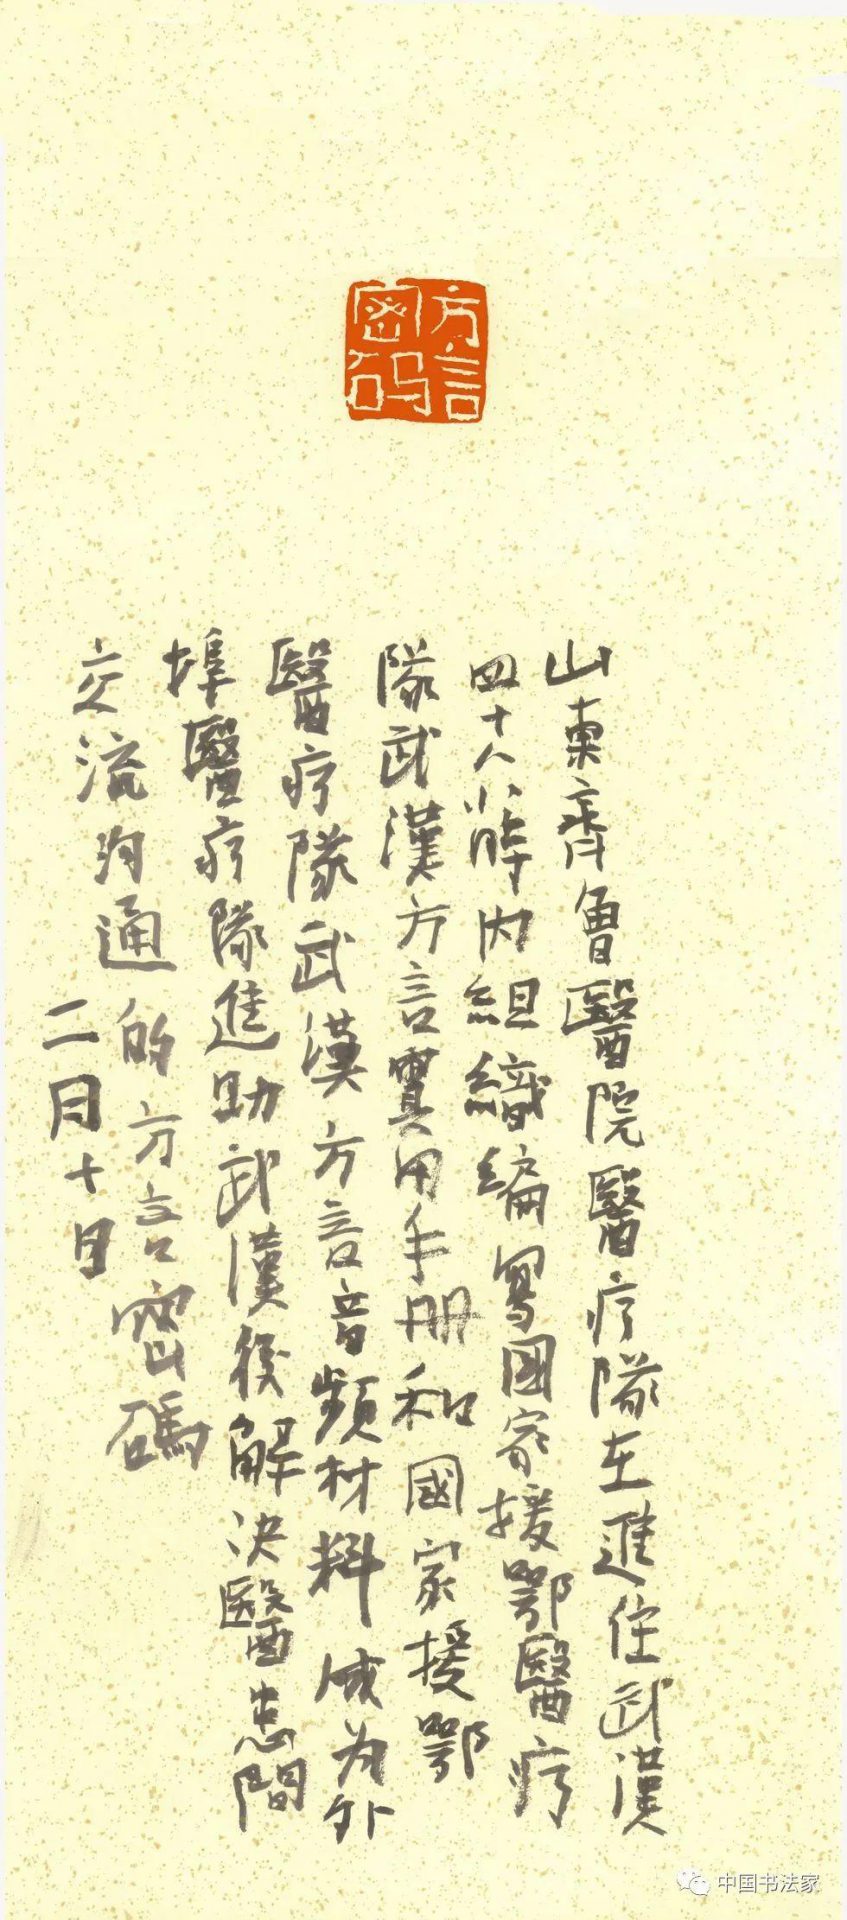 方言
密码
山東齊魯醫院醫疗隊在進住武漢
四十八小時内組織編寫國家援鄂醫疗
隊武漢方言實用手册和國家援鄂
醫疗隊武漢方言音頻材料成为外
埠醫疗隊進助武漢後解决醫患間
交流沟通的方言密碼
二月十日
中国书法家